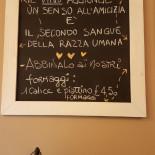 VINO AGGIUNGE
UN SENSO ALL'AMICIZIA
È
IL SECONDO SANGUE
DELLA RAZZA UMANA"
ABBINALO ai NOSTRI
FORMAGGI:
1 CALICE e PIATTINO
FORMAGGI